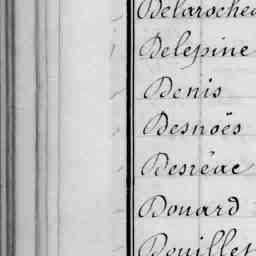 Delaroche
Delepine
Denis
Desnoës
Desréac
Douard
Douillet